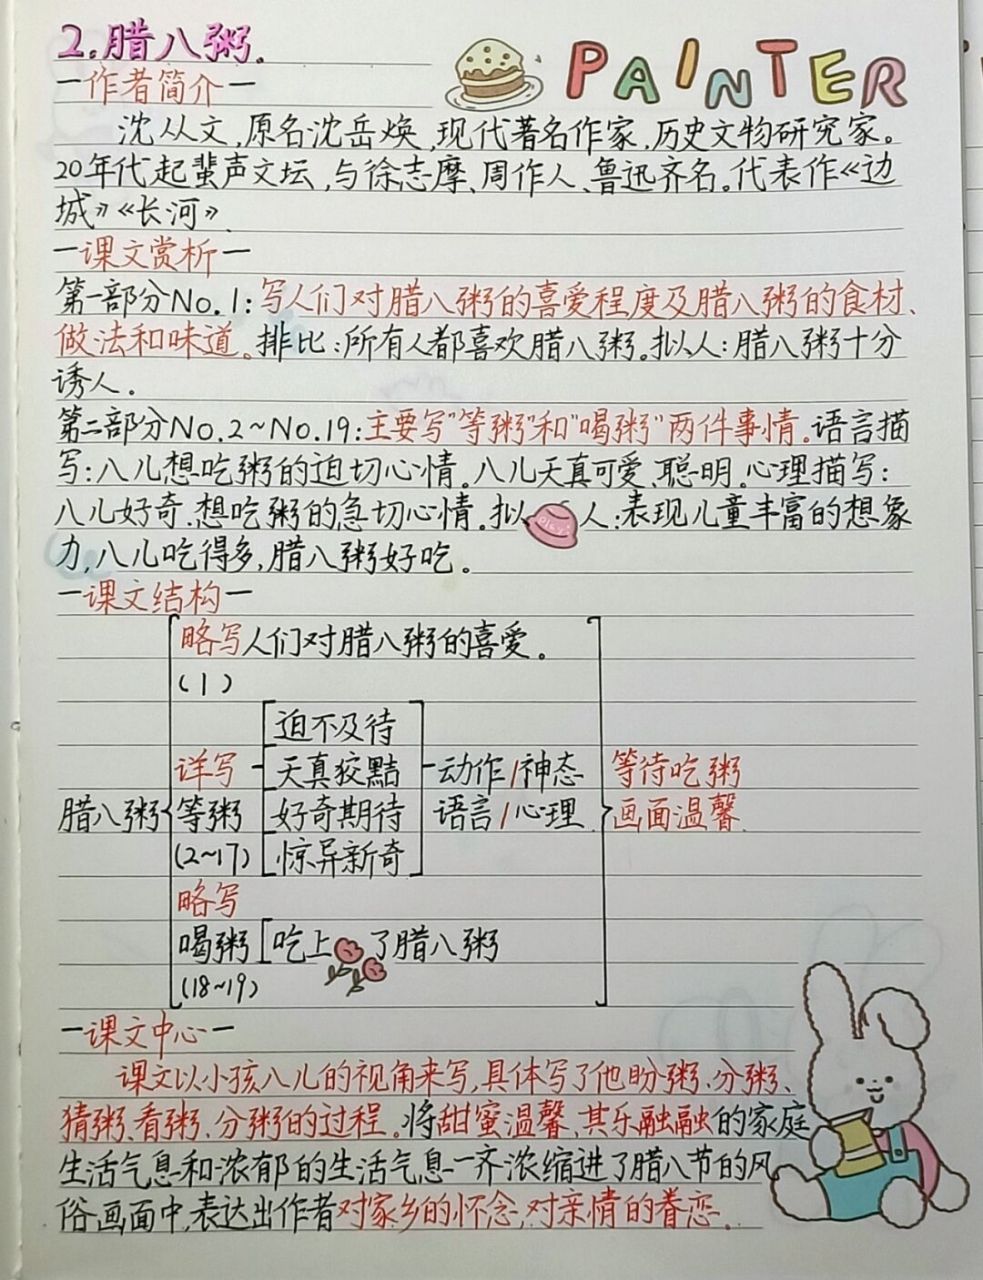 2.腊八粥.
PAINTER
一作者简介一
沈从文,原名沈岳焕,现代著名作家,历史文物研究家。
20年代起蜚声文坛,与徐志摩、周作人、鲁迅齐名。代表作《边
城》《长河》.
一课文赏析一
第一部分No.1:写人们对腊八粥的喜爱程度及腊八粥的食材、
做法和味道。排比:所有人都喜欢腊八粥。拟人:腊八粥十分
诱人.
第二部分No.2~No.19:主要写"等粥"和"喝粥"两件事情。语言描
写:八儿想吃粥的迫切心情。八儿天真可爱、聪明。心理描写:
八儿好奇、想吃粥的急切心情。拟人:表现儿童丰富的想象
力,八儿吃得多,腊八粥好吃。
一课文结构一
腊八粥
略写人们对腊八粥的喜爱。
(1)
详写
等粥
(2~17)
迫不及待
天真狡黠
好奇期待
惊异新奇
动作/神态
语言/心理
略写
喝粥
(18~19)
吃上了腊八粥
等待吃粥
画面温馨
一课文中心一
课文以小孩八儿的视角来写,具体写了他盼粥、分粥、
猜粥、看粥、分粥的过程。将甜蜜温馨、其乐融融的家庭
生活气息和浓郁的生活气息一齐浓缩进了腊八节的风
俗画面中,表达出作者对家乡的怀念,对亲情的眷恋.